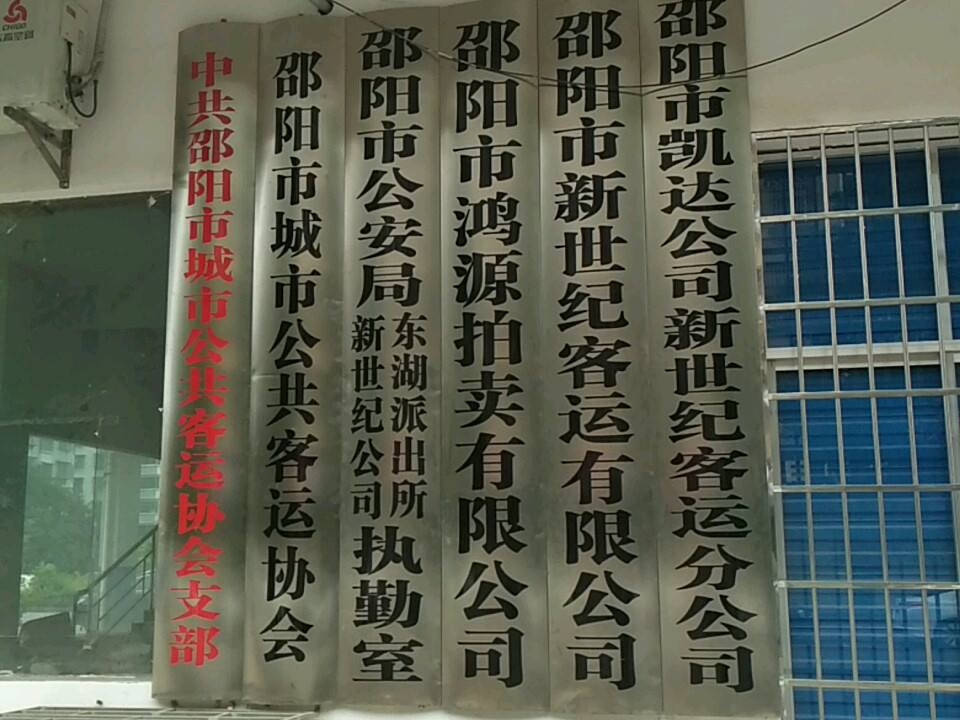 中共邵阳市城市公共客运协会支部
邵阳市城市公共客运协会
邵阳市公安局东湖派出所新世纪公司执勤室
邵阳市鸿源拍卖有限公司
邵阳市新世纪客运有限公司
邵阳市凯达公司新世纪客运分公司
CHIGO